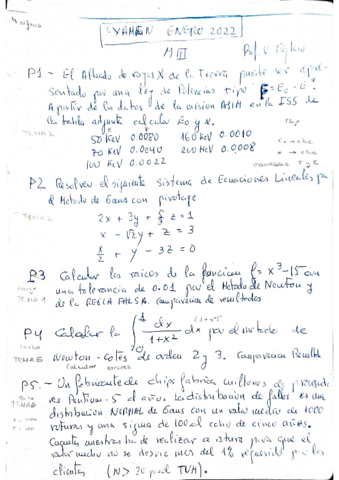 EXAMEN ENERO 2022
M III Prof V.
P1 - El Albedo de rayos X de la Tierra puede ser repre-
sentado por una ley de Potencias tipo F = E0 · E
A partir de los datos de la mision ASIM en la ISS de
la tabla adjunta calcular E0 y α.
TEMA 2
50 KeV 0.0080 160 KeV 0.0010
70 KeV 0.0040 200 KeV 0.0008
100 KeV 0.0022
P2 Resolver el siguiente sistema de Ecuaciones Lineales por
el Metodo de Gaus con pivotage
2x + 3y + z = 1
x - √2y + z = 3
x/2 + y - 3z = 0
P3 Calcular las raices de la funcion f = x³-15 con
una tolerancia de 0.01 por el Metodo de Newton y
de la REGLA FALSA. Comparacion de resultados
P4 Calcular la ∫ dx/1+x² dx por el metodo de
TEMA 5 Newton-Cotes de orden 2 y 3. Comparacion Result
calcular errores
P5.- Un fabricante de chips fabrica millones de procesado-
res Pentium-5 al año. La distribucion de fallos es una
distribucion NORMAL de Gaus con un valor medio de 1000
roturas y una sigma de 100 al cabo de cinco años.
Cuantas muestras ha de realizar a rotura para que el
valor medio no se desvie mas del 1% requerido por los
clientes (N > 30 por el TLM).